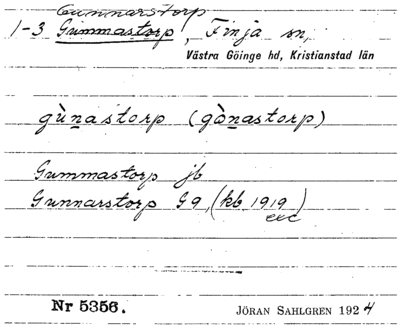 Gunnarstorp
1-3 Gummastorp, Finja sn,
Västra Göinge hd, Kristianstad län
gùn̲astorp (gòn̲astorp)
Gummastorp jb
Gunnarstorp G9, (kb 1919)
exc
Nr 5356.
JÖRAN SAHLGREN 1924